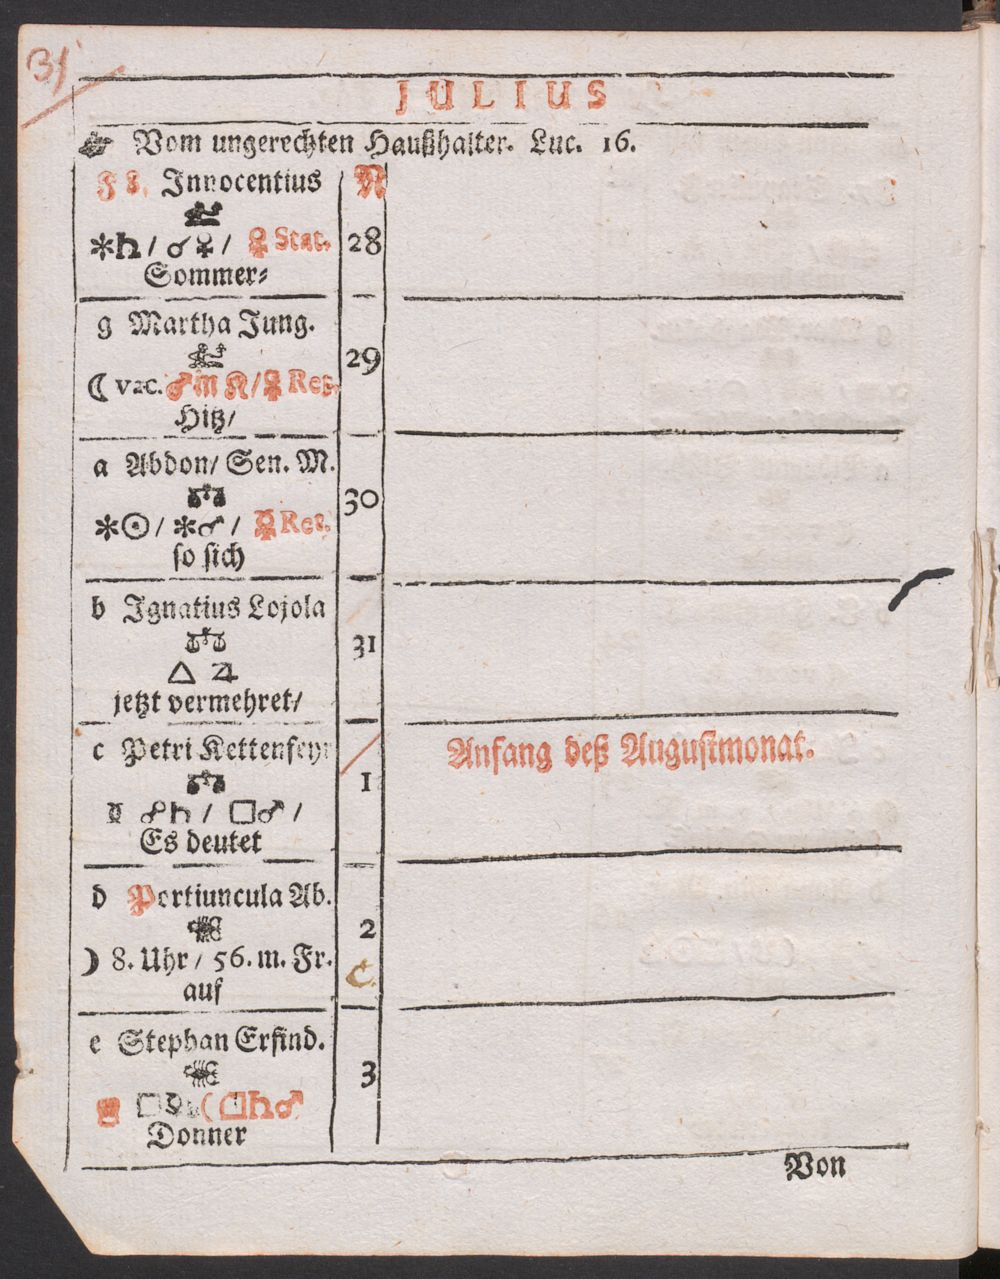 31
JULIUS
☞ Vom ungerechten Haußhalter. Luc. 16.
F 8. Innocentius N
✻♄/☌♀/ ♀ Stat. 28
Sommer⸗
g Martha Jung.
29
☾ vac. ♂ in ♌/♀ Ret.
Hitz/
a Abdon/ Sen. M.
30
✻☉/✻♂/ ☿ Ret.
so sich
b Ignatius Lojola
31
△ ♃
jetzt vermehret/
c Petri Kettenfeyr
Anfang deß Augustmonat.
1
☿ ☍♄ / □♂ /
Es deutet
d Portiuncula Ab.
2
☽ 8. Uhr/ 56. m. Fr.
auf
e Stephan Erfind.
3
□♄♂
Donner
Von